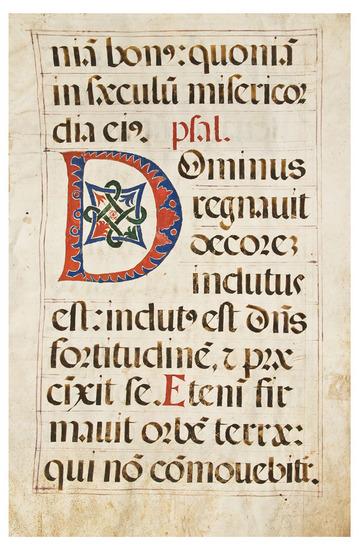 niā bonꝰ: quoniā
in sæculū misericor
dia eiꝰ. psal.
Dominus
regnauit
decoreʒ
indutus
est: indutꝰ est dn̄s
fortitudinē, ⁊ præ
cīxit se. Etenī fir
mauit orbē terræ:
qui nō cōmouebit᷑.